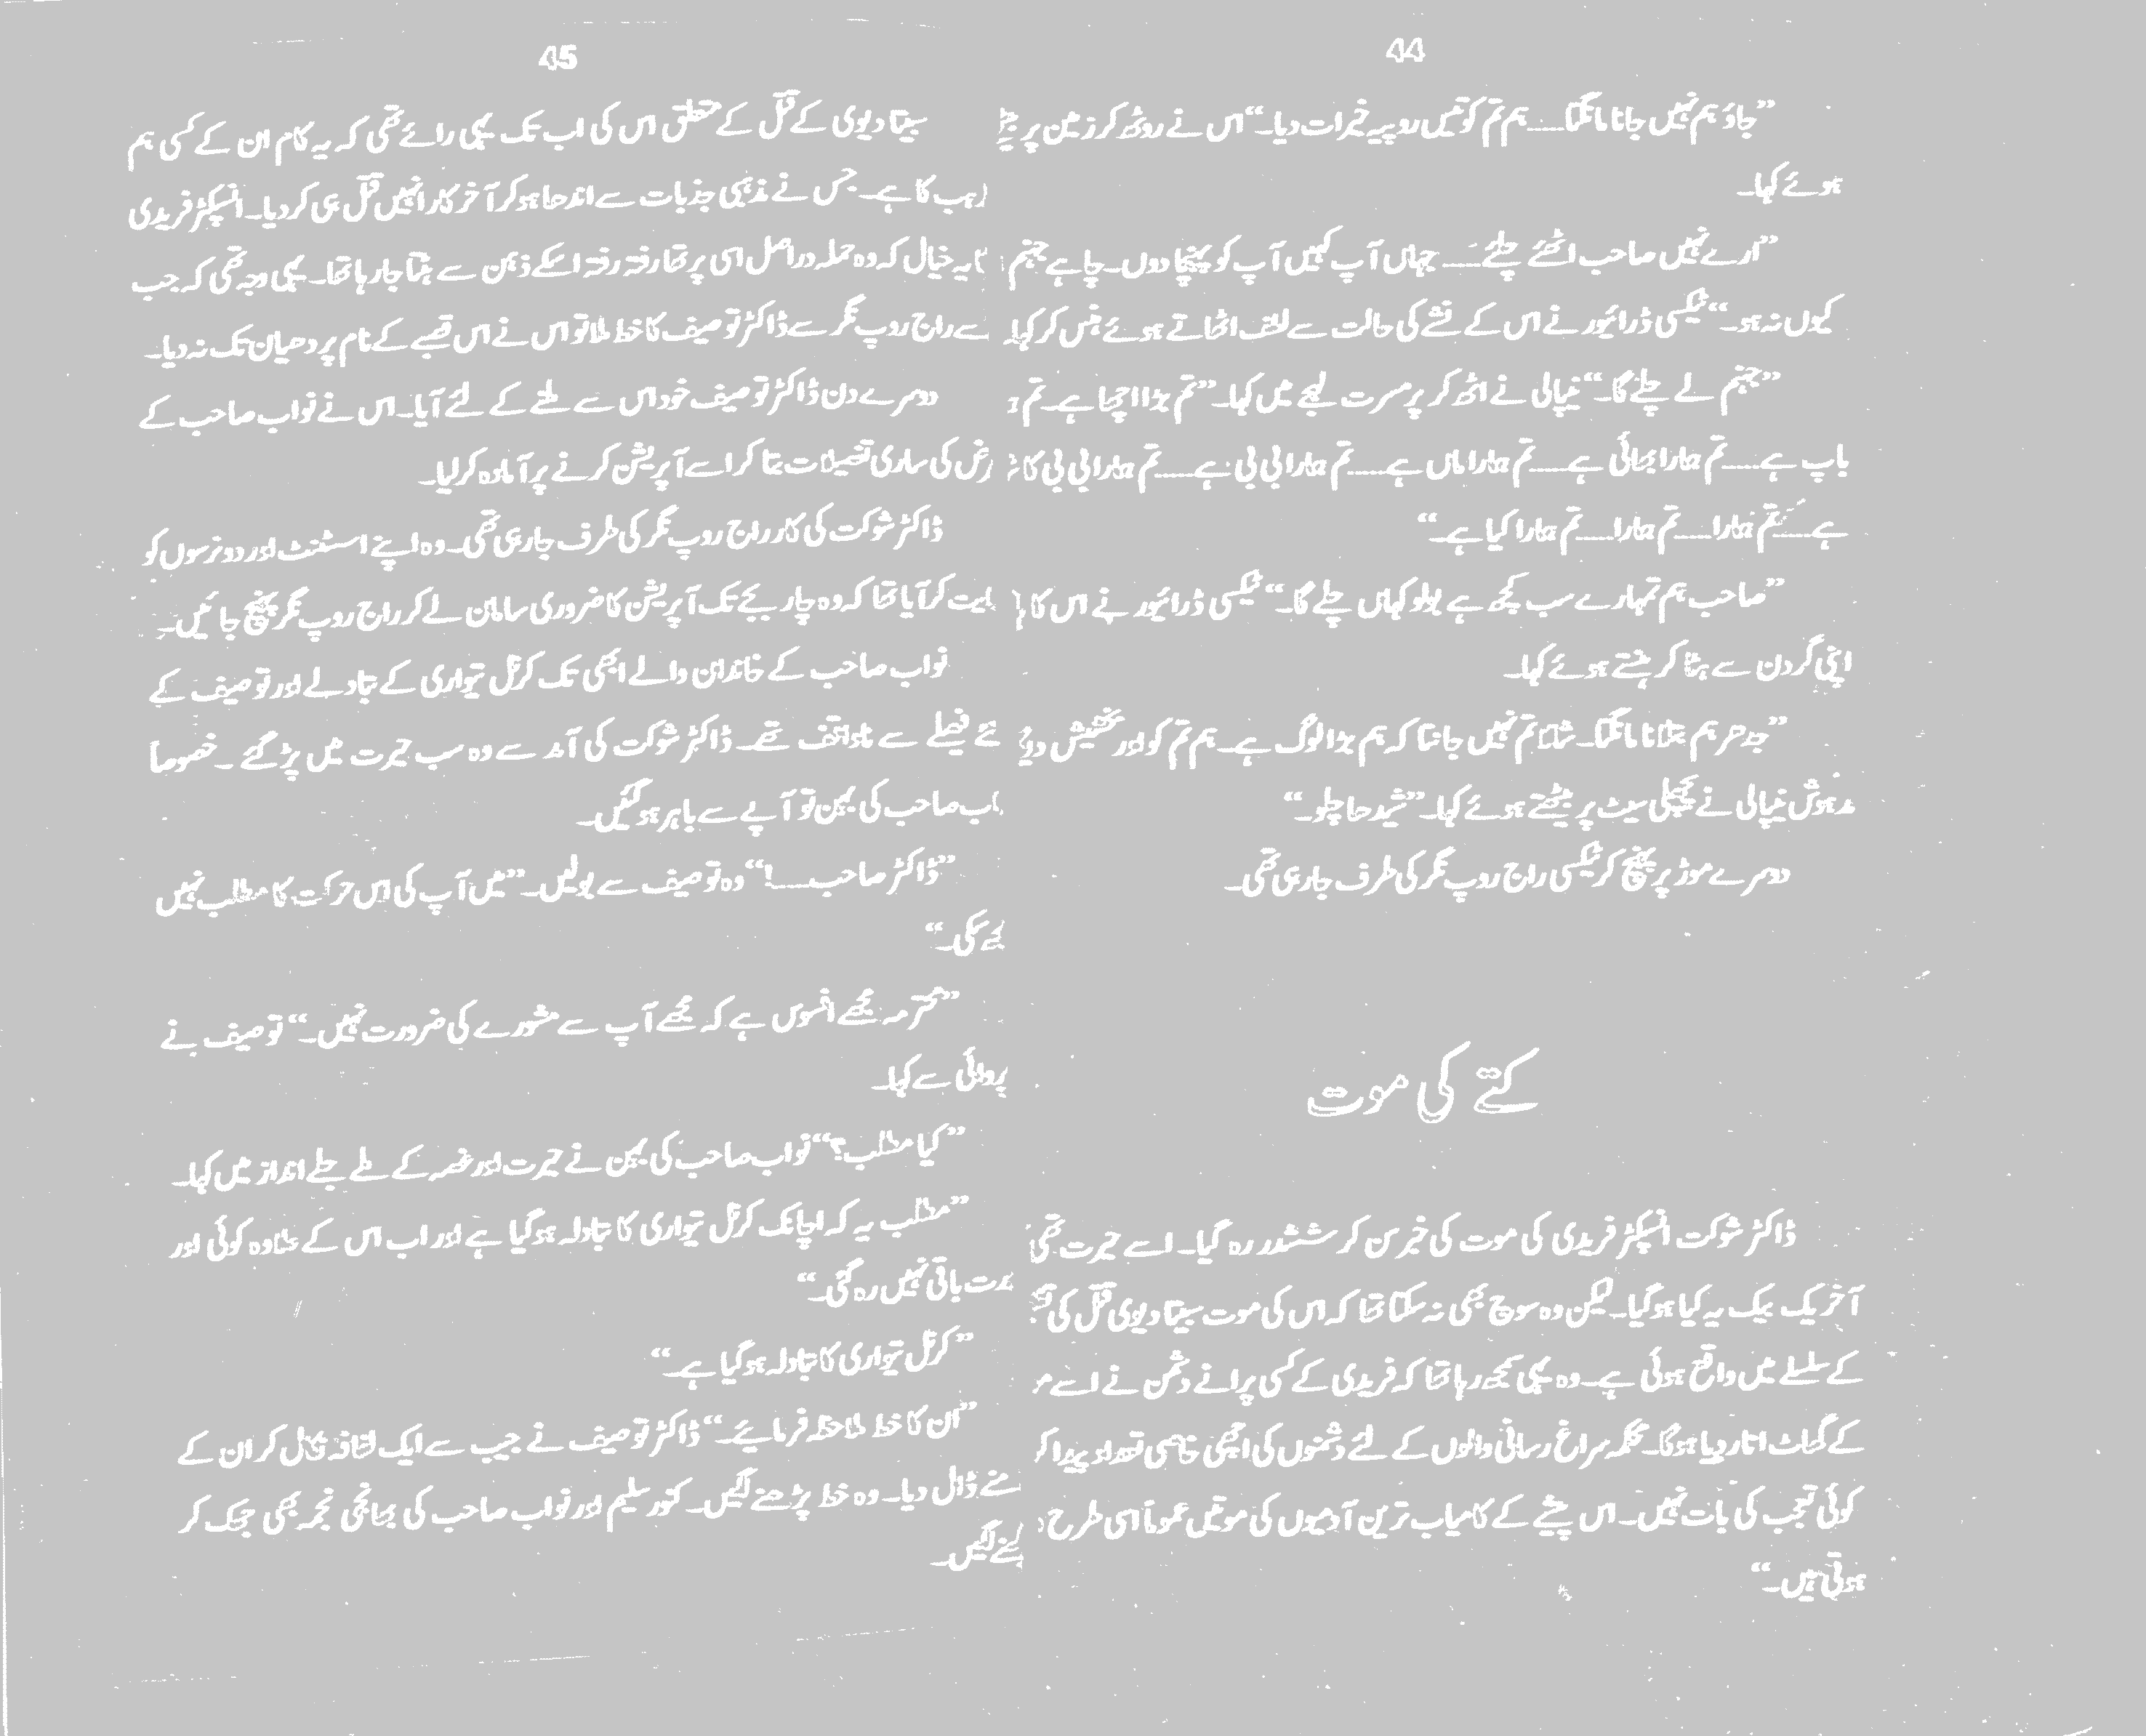 44
”جاؤ ہم نہیں جانا مانگتا...... ہم تم کو تمیں روپیہ خیرات دیا۔“ اس نے روٹھ کر زمین پر
ہوئے کہا۔
”ارے نہیں صاحب اٹھئے چلئے...... جہاں آپ کہیں آپ کو پہنچا دوں۔ چاہے جہنم
کیوں نہ ہو۔“ ٹیکسی ڈرائیور نے اس کے نشے کی حالت سے لطف اٹھاتے ہوئے ہنس کر کہا۔
”جہنم لے چلے گا۔“ نیپالی نے اٹھ کر پر مسرت لہجے میں کہا۔ ”تم بڑا اچھا ہے۔ تم
باپ ہے...... تم ہمارا بھائی ہے...... تم ہمارا ماں ہے...... تم ہمارا بی بی ہے...... تم ہمارا بی بی کا
ہے...... تم ہمارا...... تم ہمارا...... تم ہمارا کیا ہے۔“
”صاحب ہم تمہارے سب کچھ ہے بولو کہاں چلے گا۔“ ٹیکسی ڈرائیور نے اس کا
اپنی گردن سے ہٹا کر ہنستے ہوئے کہا۔
”جدھر ہم بتلانا مانگتا۔ شالا تم نہیں جانتا کہ ہم بڑا لوگ ہے۔ ہم تم کو اور بخشیش دے
مدہوش نیپالی نے پچھلی سیٹ پر بیٹھتے ہوئے کہا۔ ”شیدھا چلو۔“
دوسرے موڑ پر پہنچ کر ٹیکسی راج روپ نگر کی طرف جا رہی تھی۔
کتے کی موت
ڈاکٹر شوکت انسپکٹر فریدی کی موت کی خبر سن کر ششدر رہ گیا۔ اسے حیرت تھی
آخر یک بیک یہ کیا ہو گیا۔ لیکن وہ سوچ بھی نہ سکتا تھا کہ اس کی موت سیتا دیوی قتل کی
کے سلسلے میں واقع ہوئی ہے۔ وہ یہی سمجھ رہا تھا کہ فریدی کے کسی پرانے دشمن نے اسے
کے گھاٹ اتار دیا ہوگا۔ محکمہ سراغ رسانی والوں کے لئے دشمنوں کی اچھی خاصی تعداد پیدا کر
کوئی تعجب کی بات نہیں۔ اس پیشے کے کامیاب ترین آدمیوں کی موتیں عموماً اسی طرح
ہوتی ہیں۔“
45
سیتا دیوی کے قتل کے متعلق اس کی اب تک یہی رائے تھی کہ یہ کام ان کے کسی ہم
کا ہے۔ جس نے مذہبی جذبات سے اندھا ہو کر آخر کار انہیں قتل ہی کر دیا۔ انسپکٹر فریدی
یہ خیال کہ وہ حملہ دراصل اسی پر تھا رفتہ رفتہ اسکے ذہن سے ہٹتا جا رہا تھا۔ یہی وجہ تھی کہ جب
راج روپ نگر سے ڈاکٹر توصیف کا خط ملا تو اس نے اس قصبے کے نام پر دھیان تک نہ دیا۔
دوسرے دن ڈاکٹر توصیف خود اس سے ملنے کے لئے آیا۔ اس نے نواب صاحب کے
کی ساری تفصیلات بتا کر اسے آپریشن کرنے پر آمادہ کر لیا۔
ڈاکٹر شوکت کی کار راج روپ نگر کی طرف جا رہی تھی۔ وہ اپنے اسسٹنٹ اور دو نرسوں کو
کر آیا تھا کہ وہ چار بجے تک آپریشن کا ضروری سامان لے کر راج روپ نگر پہنچ جائیں۔
نواب صاحب کے خاندان والے ابھی تک کرنل تیواری کے تبادلے اور توصیف کے
فیصلے سے ناواقف تھے۔ ڈاکٹر شوکت کی آمد سے وہ سب حیرت میں پڑ گئے۔ خصوصاً
صاحب کی بہن تو آپے سے باہر ہو گئیں۔
”ڈاکٹر صاحب......!“ وہ توصیف سے بولیں۔ ”میں آپ کی اس حرکت کا مطلب نہیں
سکی۔“
”محترمہ مجھے افسوس ہے کہ مجھے آپ سے مشورے کی ضرورت نہیں۔“ توصیف نے
سے کہا۔
”کیا مطلب؟“ نواب صاحب کی بہن نے حیرت اور غصہ کے ملے جلے انداز میں کہا۔
”مطلب یہ کہ اچانک کرنل تیواری کا تبادلہ ہو گیا ہے اور اب اس کے علاوہ کوئی اور
باقی نہیں رہ گئی۔“
”کرنل تیواری کا تبادلہ ہو گیا ہے۔“
”ان کا خط ملاحظہ فرمائیے۔“ ڈاکٹر توصیف نے جیب سے ایک لفافہ نکال کر ان کے
ڈال دیا۔ وہ خط پڑھنے لگیں۔ کنور سلیم اور نواب صاحب کی بھانجی نجمہ بھی جھک کر
لگیں۔